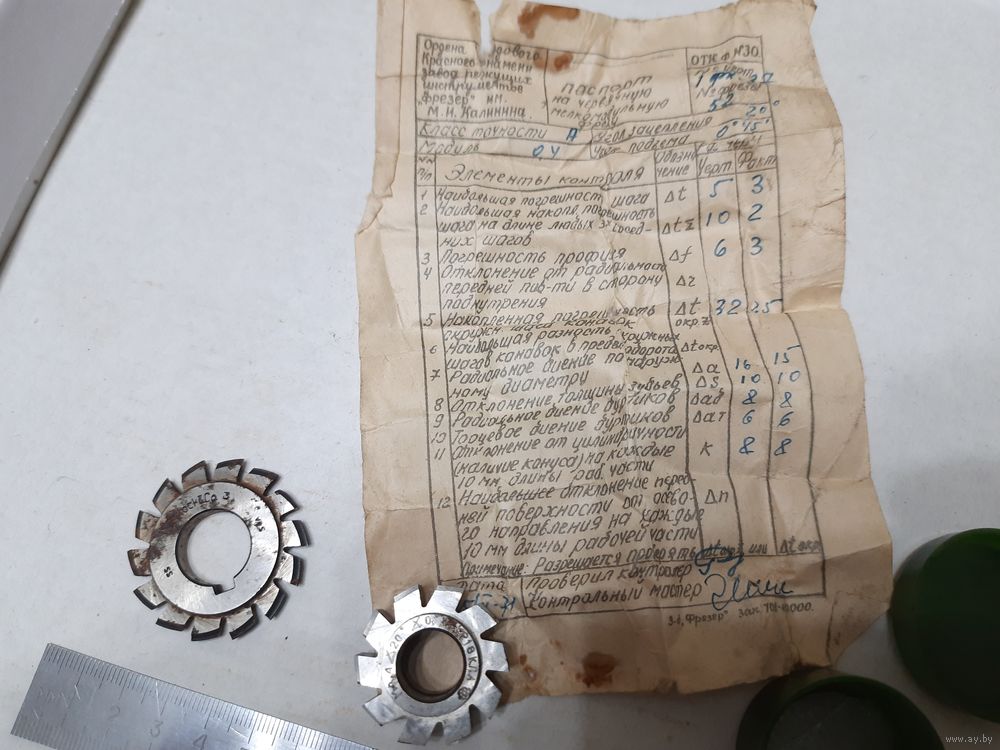 Ордена
Красного знамени
завод режущих
инструментов
"Фрезер" им.
М.И. Калинина.
Паспорт
на червячную
мелкомодульную
фрезу
ОТК ф. №30
№ фрезы
52
Класс точности А
Угол зацепления 20°
Модуль 0,4
Угол подъема 0°45'
№№ п/п
Элементы контроля
Обозначение
Черт. Факт
1 Наибольшая погрешность шага Δt 5 3
2 Наибольшая накопл. погрешность
шага на длине любых 3х сосед-
них шагов ΔtΣ 10 2
3 Погрешность профиля Δf 6 3
4 Отклонение от радиальности
передней пов-ти в сторону
поднутрения Δr
5 Накопленная погрешность
окружн. шага канавок Δt окр.Σ 32 25
6 Наибольшая разность окружных
шагов канавок в пред. оборота Δt окр.
7 Радиальное биение по наруж-
ному диаметру Δa 16 15
8 Отклонение толщины зубьев ΔS 10 10
9 Радиальное биение буртиков Δaб 8 8
10 Торцевое биение буртиков Δaт 6 6
11 Отклонение от цилиндричности
(наличие конуса) на каждые
10 мм длины раб. части К 8 8
12 Наибольшее отклонение перед-
ней поверхности от осево-
го направления на каждые
10 мм длины рабочей части Δп
Примечание: Разрешается поверять или Δt окр
Дата
Проверил контролер
Контрольный мастер
З-д "Фрезер" Зак. 701-10000.
20°
КЛ.А
2 3 4
www.ay.by